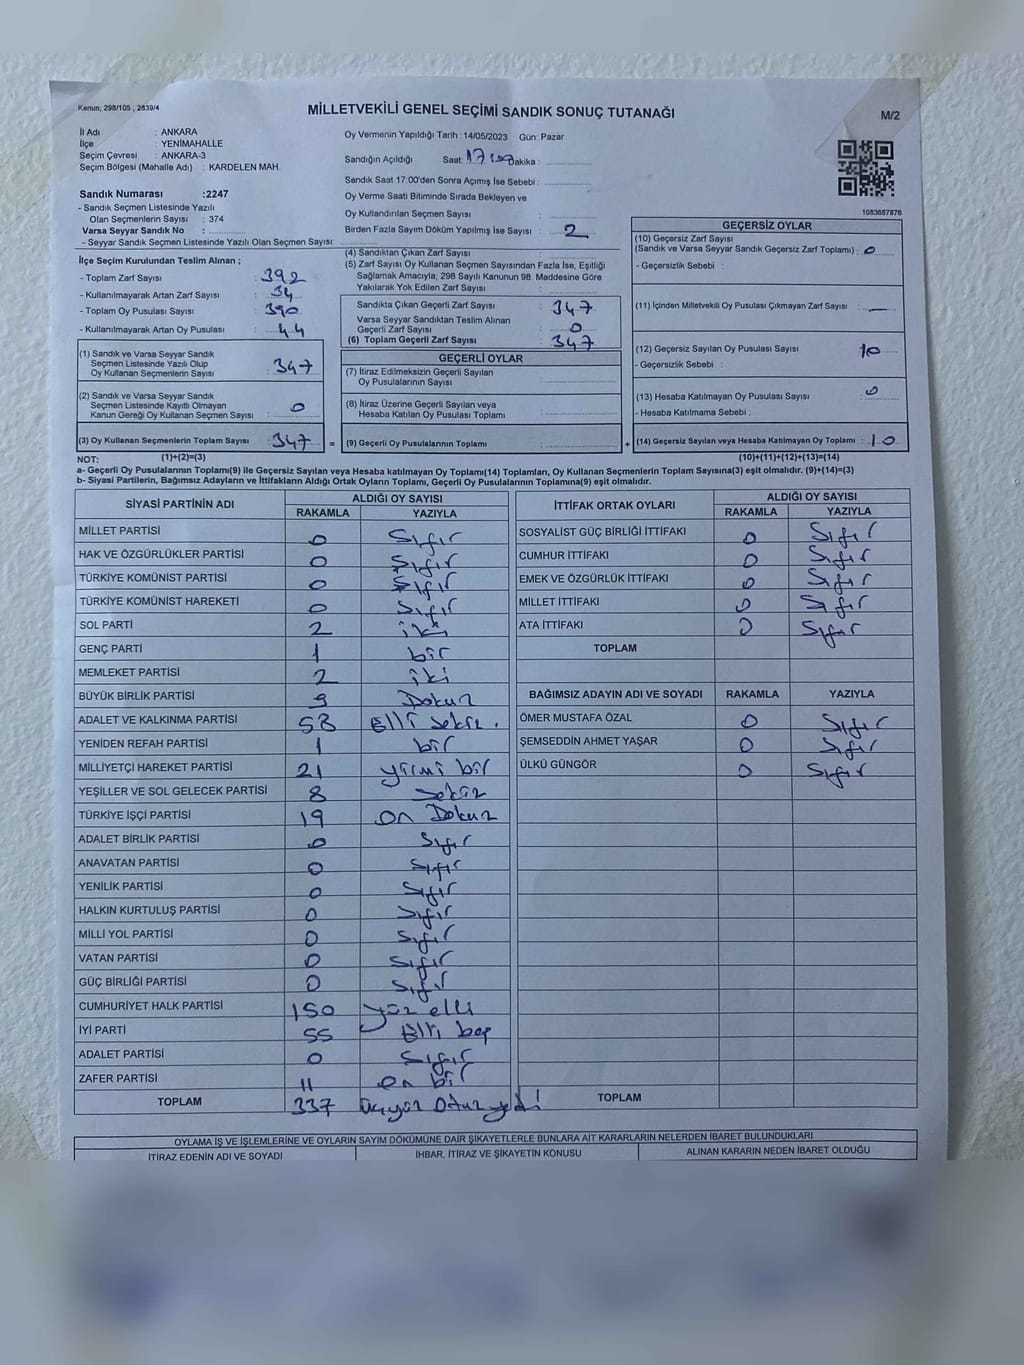 Kanun; 298/105 , 2839/4
MİLLETVEKİLİ GENEL SEÇİMİ SANDIK SONUÇ TUTANAĞI
M/2
İl Adı : ANKARA
İlçe : YENİMAHALLE
Seçim Çevresi : ANKARA-3
Seçim Bölgesi (Mahalle Adı) : KARDELEN MAH.
Sandık Numarası :2247
- Sandık Seçmen Listesinde Yazılı
Olan Seçmenlerin Sayısı : 374
Varsa Seyyar Sandık No :
- Seyyar Sandık Seçmen Listesinde Yazılı Olan Seçmen Sayısı:
Oy Vermenin Yapıldığı Tarih :14/05/2023 Gün: Pazar
Sandığın Açıldığı Saat: 17:00 Dakika :
Sandık Saat 17:00'den Sonra Açımış İse Sebebi :
Oy Verme Saati Bitiminde Sırada Bekleyen ve
Oy Kullandırılan Seçmen Sayısı :
Birden Fazla Sayım Döküm Yapılmış İse Sayısı : 2
1083687876
İlçe Seçim Kurulundan Teslim Alınan ;
- Toplam Zarf Sayısı : 392
- Kullanılmayarak Artan Zarf Sayısı : 34
- Toplam Oy Pusulası Sayısı : 390
- Kullanılmayarak Artan Oy Pusulası : 44
(1) Sandık ve Varsa Seyyar Sandık
Seçmen Listesinde Yazılı Olup
Oy Kullanan Seçmenlerin Sayısı : 347
(2) Sandık ve Varsa Seyyar Sandık
Seçmen Listesinde Kayıtlı Olmayan
Kanun Gereği Oy Kullanan Seçmen Sayısı : 0
(3) Oy Kullanan Seçmenlerin Toplam Sayısı : 347 =
(4) Sandıktan Çıkan Zarf Sayısı :
(5) Zarf Sayısı Oy Kullanan Seçmen Sayısından Fazla İse, Eşitliği
Sağlamak Amacıyla, 298 Sayılı Kanunun 98. Maddesine Göre
Yakılarak Yok Edilen Zarf Sayısı :
Sandıkta Çıkan Geçerli Zarf Sayısı : 347
Varsa Seyyar Sandıktan Teslim Alınan
Geçerli Zarf Sayısı : 0
(6) Toplam Geçerli Zarf Sayısı : 347
GEÇERLİ OYLAR
(7) İtiraz Edilmeksizin Geçerli Sayılan
Oy Pusulalarının Sayısı :
(8) İtiraz Üzerine Geçerli Sayılan veya
Hesaba Katılan Oy Pusulası Toplamı :
(9) Geçerli Oy Pusulalarının Toplamı : +
GEÇERSİZ OYLAR
(10) Geçersiz Zarf Sayısı
(Sandık ve Varsa Seyyar Sandık Geçersiz Zarf Toplamı) : 0
- Geçersizlik Sebebi :
(11) İçinden Milletvekili Oy Pusulası Çıkmayan Zarf Sayısı : —
(12) Geçersiz Sayılan Oy Pusulası Sayısı : 10
- Geçersizlik Sebebi :
(13) Hesaba Katılmayan Oy Pusulası Sayısı : 0
- Hesaba Katılmama Sebebi :
(14) Geçersiz Sayılan veya Hesaba Katılmayan Oy Toplamı : 10
NOT: (1)+(2)=(3) (10)+(11)+(12)+(13)=(14)
a- Geçerli Oy Pusulalarının Toplamı(9) ile Geçersiz Sayılan veya Hesaba katılmayan Oy Toplamı(14) Toplamları, Oy Kullanan Seçmenlerin Toplam Sayısına(3) eşit olmalıdır. (9)+(14)=(3)
b- Siyasi Partilerin, Bağımsız Adayların ve İttifakların Aldığı Ortak Oyların Toplamı, Geçerli Oy Pusulalarının Toplamına(9) eşit olmalıdır.
SİYASİ PARTİNİN ADI ALDIĞI OY SAYISI
RAKAMLA YAZIYLA
MİLLET PARTİSİ 0 Sıfır
HAK VE ÖZGÜRLÜKLER PARTİSİ 0 Sıfır
TÜRKİYE KOMÜNİST PARTİSİ 0 Sıfır
TÜRKİYE KOMÜNİST HAREKETİ 0 Sıfır
SOL PARTİ 2 iki
GENÇ PARTİ 1 bir
MEMLEKET PARTİSİ 2 iki
BÜYÜK BİRLİK PARTİSİ 9 Dokuz
ADALET VE KALKINMA PARTİSİ 58 Elli sekiz.
YENİDEN REFAH PARTİSİ 1 bir
MİLLİYETÇİ HAREKET PARTİSİ 21 yirmi bir
YEŞİLLER VE SOL GELECEK PARTİSİ 8 sekiz
TÜRKİYE İŞÇİ PARTİSİ 19 on Dokuz
ADALET BİRLİK PARTİSİ 0 Sıfır
ANAVATAN PARTİSİ 0 Sıfır
YENİLİK PARTİSİ 0 Sıfır
HALKIN KURTULUŞ PARTİSİ 0 Sıfır
MİLLİ YOL PARTİSİ 0 Sıfır
VATAN PARTİSİ 0 Sıfır
GÜÇ BİRLİĞİ PARTİSİ 0 Sıfır
CUMHURİYET HALK PARTİSİ 150 yüz elli
İYİ PARTİ 55 Elli beş
ADALET PARTİSİ 0 Sıfır
ZAFER PARTİSİ 11 on bir
TOPLAM 337 üçyüz otuz yedi
İTTİFAK ORTAK OYLARI ALDIĞI OY SAYISI
RAKAMLA YAZIYLA
SOSYALİST GÜÇ BİRLİĞİ İTTİFAKI 0 Sıfır
CUMHUR İTTİFAKI 0 Sıfır
EMEK VE ÖZGÜRLÜK İTTİFAKI 0 Sıfır
MİLLET İTTİFAKI 0 Sıfır
ATA İTTİFAKI 0 Sıfır
TOPLAM
BAĞIMSIZ ADAYIN ADI VE SOYADI RAKAMLA YAZIYLA
ÖMER MUSTAFA ÖZAL 0 Sıfır
ŞEMSEDDİN AHMET YAŞAR 0 Sıfır
ÜLKÜ GÜNGÖR 0 Sıfır
TOPLAM
OYLAMA İŞ VE İŞLEMLERİNE VE OYLARIN SAYIM DÖKÜMÜNE DAİR ŞİKAYETLERLE BUNLARA AİT KARARLARIN NELERDEN İBARET BULUNDUKLARI
İTİRAZ EDENİN ADI VE SOYADI İHBAR, İTİRAZ VE ŞİKAYETİN KONUSU ALINAN KARARIN NEDEN İBARET OLDUĞU